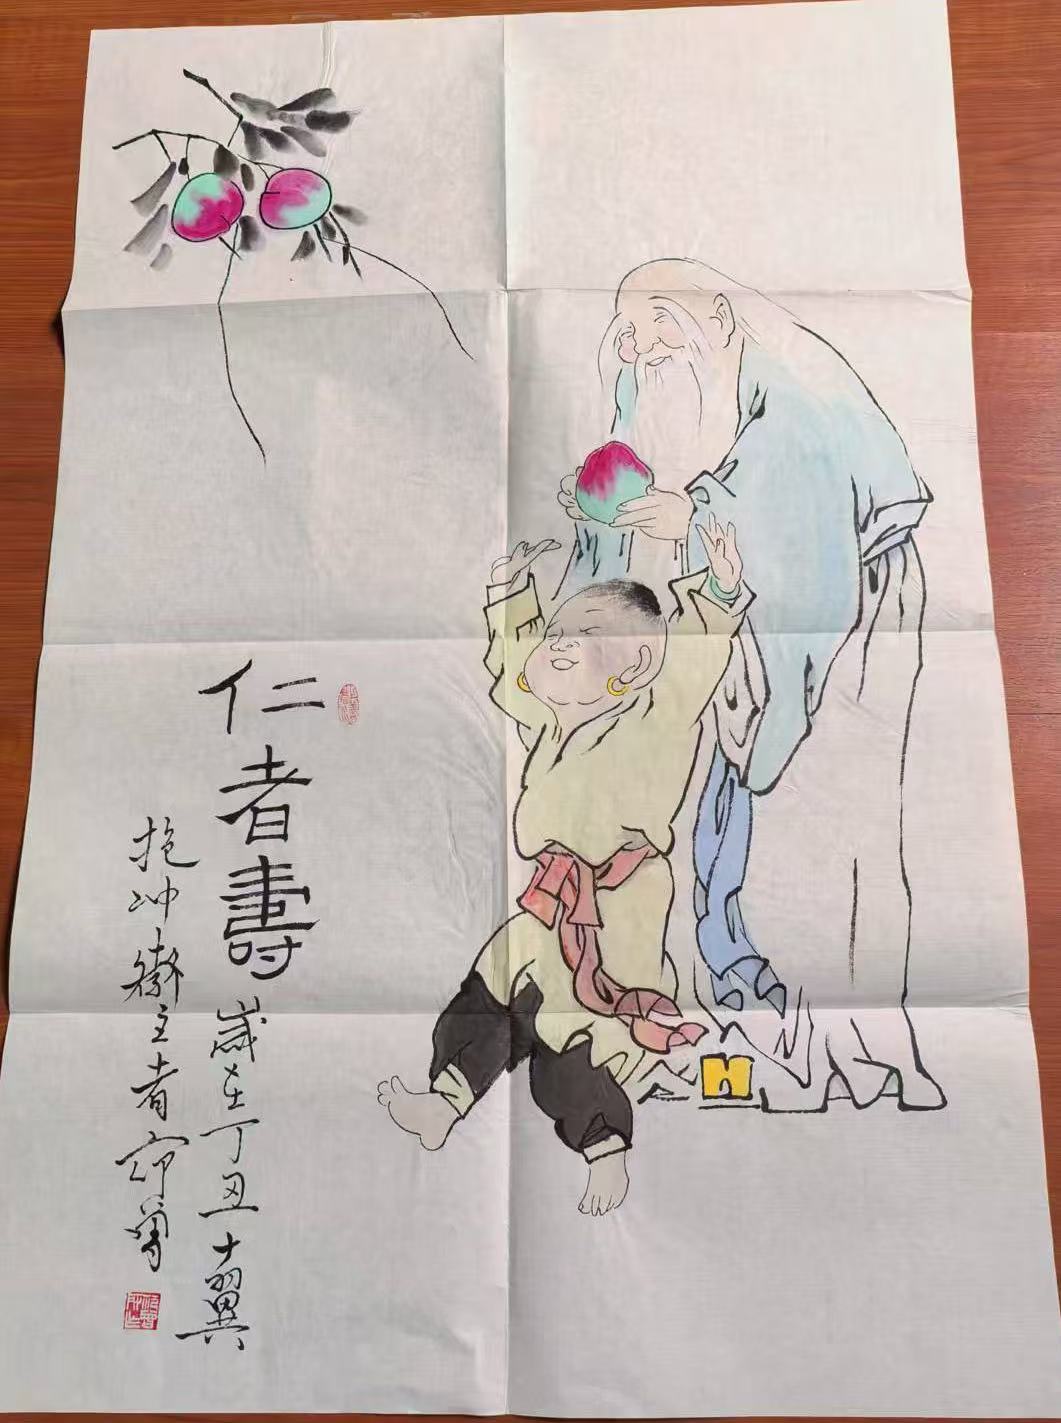 仁者壽歲在丁丑十翼
抱冲齋主者范曾